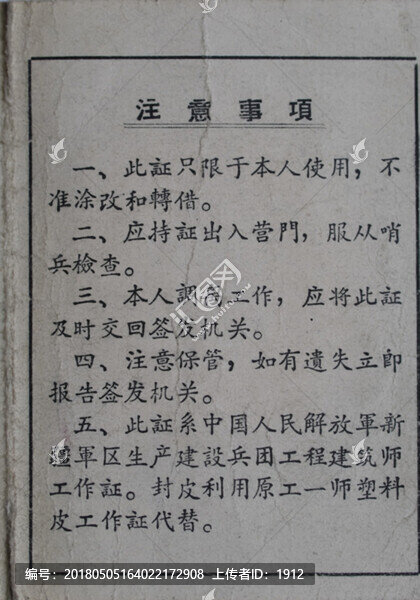 注意事項
一、此証只限于本人使用，不
准涂改和轉借。
二、应持証出入营門，服从哨
兵檢查。
三、本人調 工作，应将此証
及时交回签发机关。
四、注意保管，如有遺失立即
报告签发机关。
五、此証系中国人民解放軍新
疆軍区生产建設兵团工程建筑师
工作証。封皮利用原工一师塑料
皮工作証代替。
汇图网
www.huitu.com
编号：20180505164022172908 上传者ID：1912